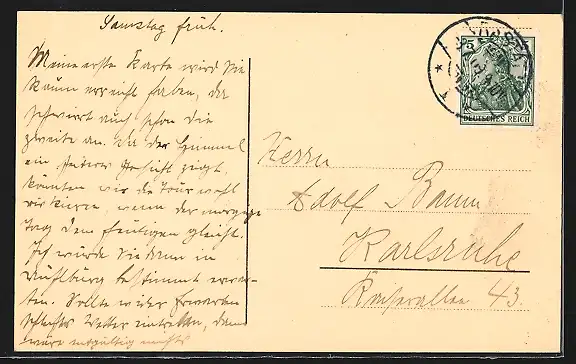 Samstag früh.
Meine erste Karte wird Sie
kaum erreicht haben, da
schwirrt auch schon die
zweite an. Da der Himmel
ein heiteres Gesicht zeigt,
könnten wir die Tour wohl
riskieren, wenn der morgige
Tag dem heutigen gleicht.
Ich würde Sie dann in
Mühlburg bestimmt erwar-
ten. Sollte wider Erwarten
schlechtes Wetter eintreten, dann
wäre endgültig nichts
5
DEUTSCHES REICH
Herrn
Adolf Baum
Karlsruhe
Kaiserallee 43.